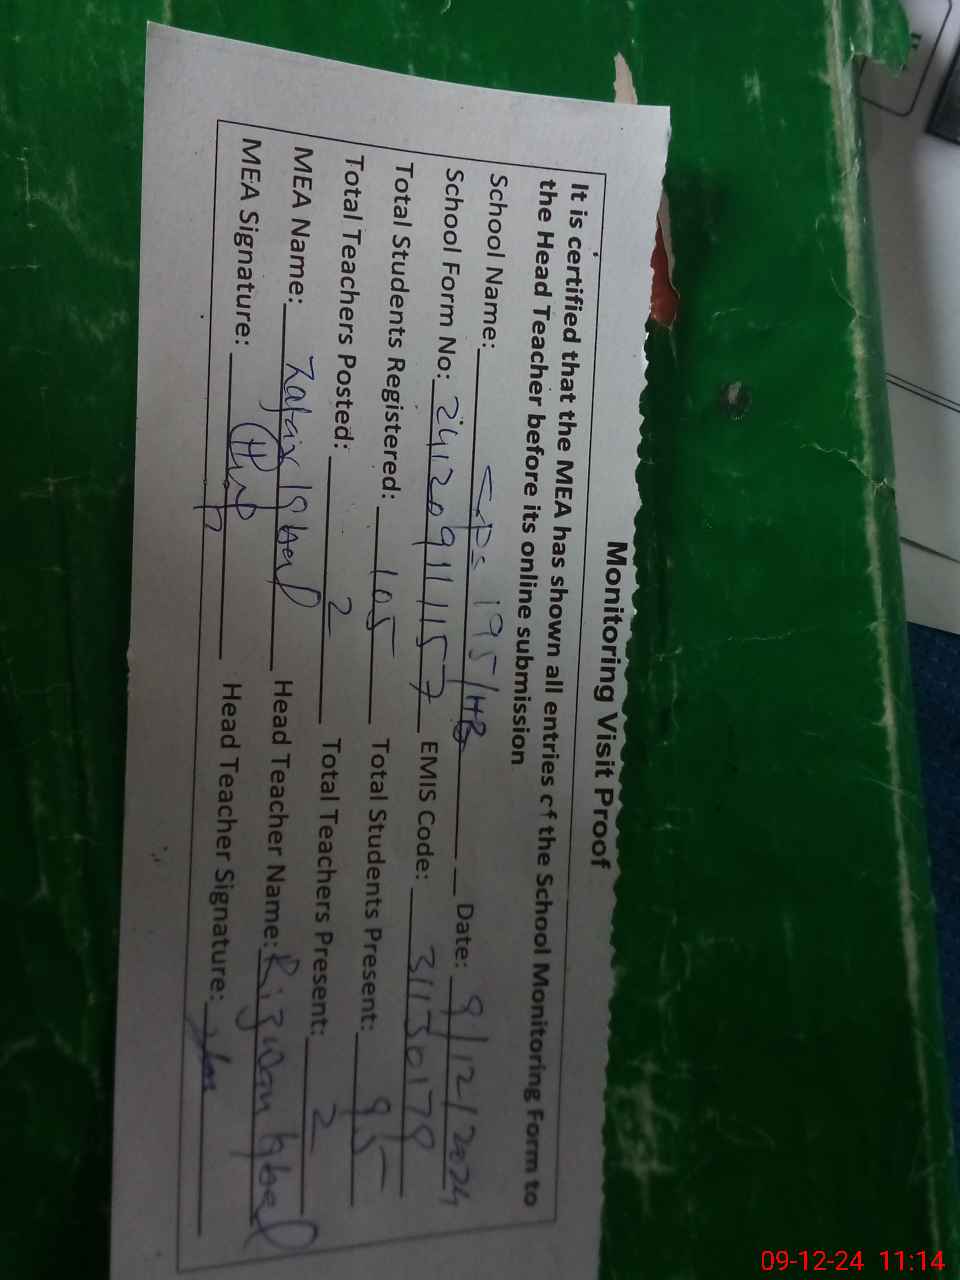 Monitoring Visit Proof
It is certified that the MEA has shown all entries of the School Monitoring Form to
the Head Teacher before its online submission
School Name: GPS 195/HB Date: 9/12/2024
School Form No: 2412091157 EMIS Code: 31130179
Total Students Registered: 105 Total Students Present: 95
Total Teachers Posted: 2 Total Teachers Present: 2
MEA Name: Zafar Iqbal Head Teacher Name: Rizwan Iqbal
MEA Signature: Head Teacher Signature:
09-12-24 11:14